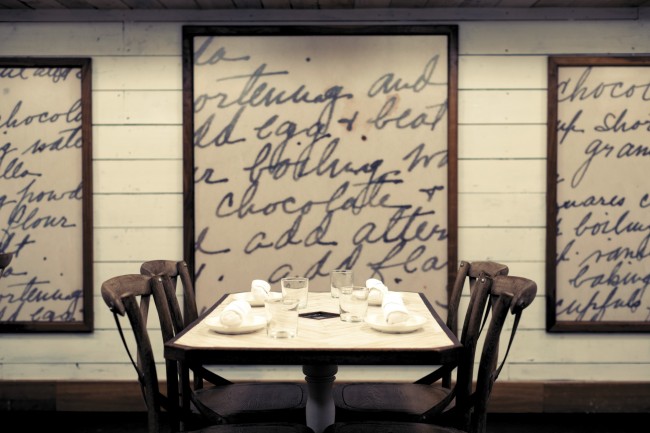 chocola
g wate
lla
g powd
flour
ft
ortening
d egg
la
ortening and
dd egg & beat
r boiling wa
chocolate &
add altern
add fla
chocola
up shor
gran
uares c
boilin
van
baking
cupfuls